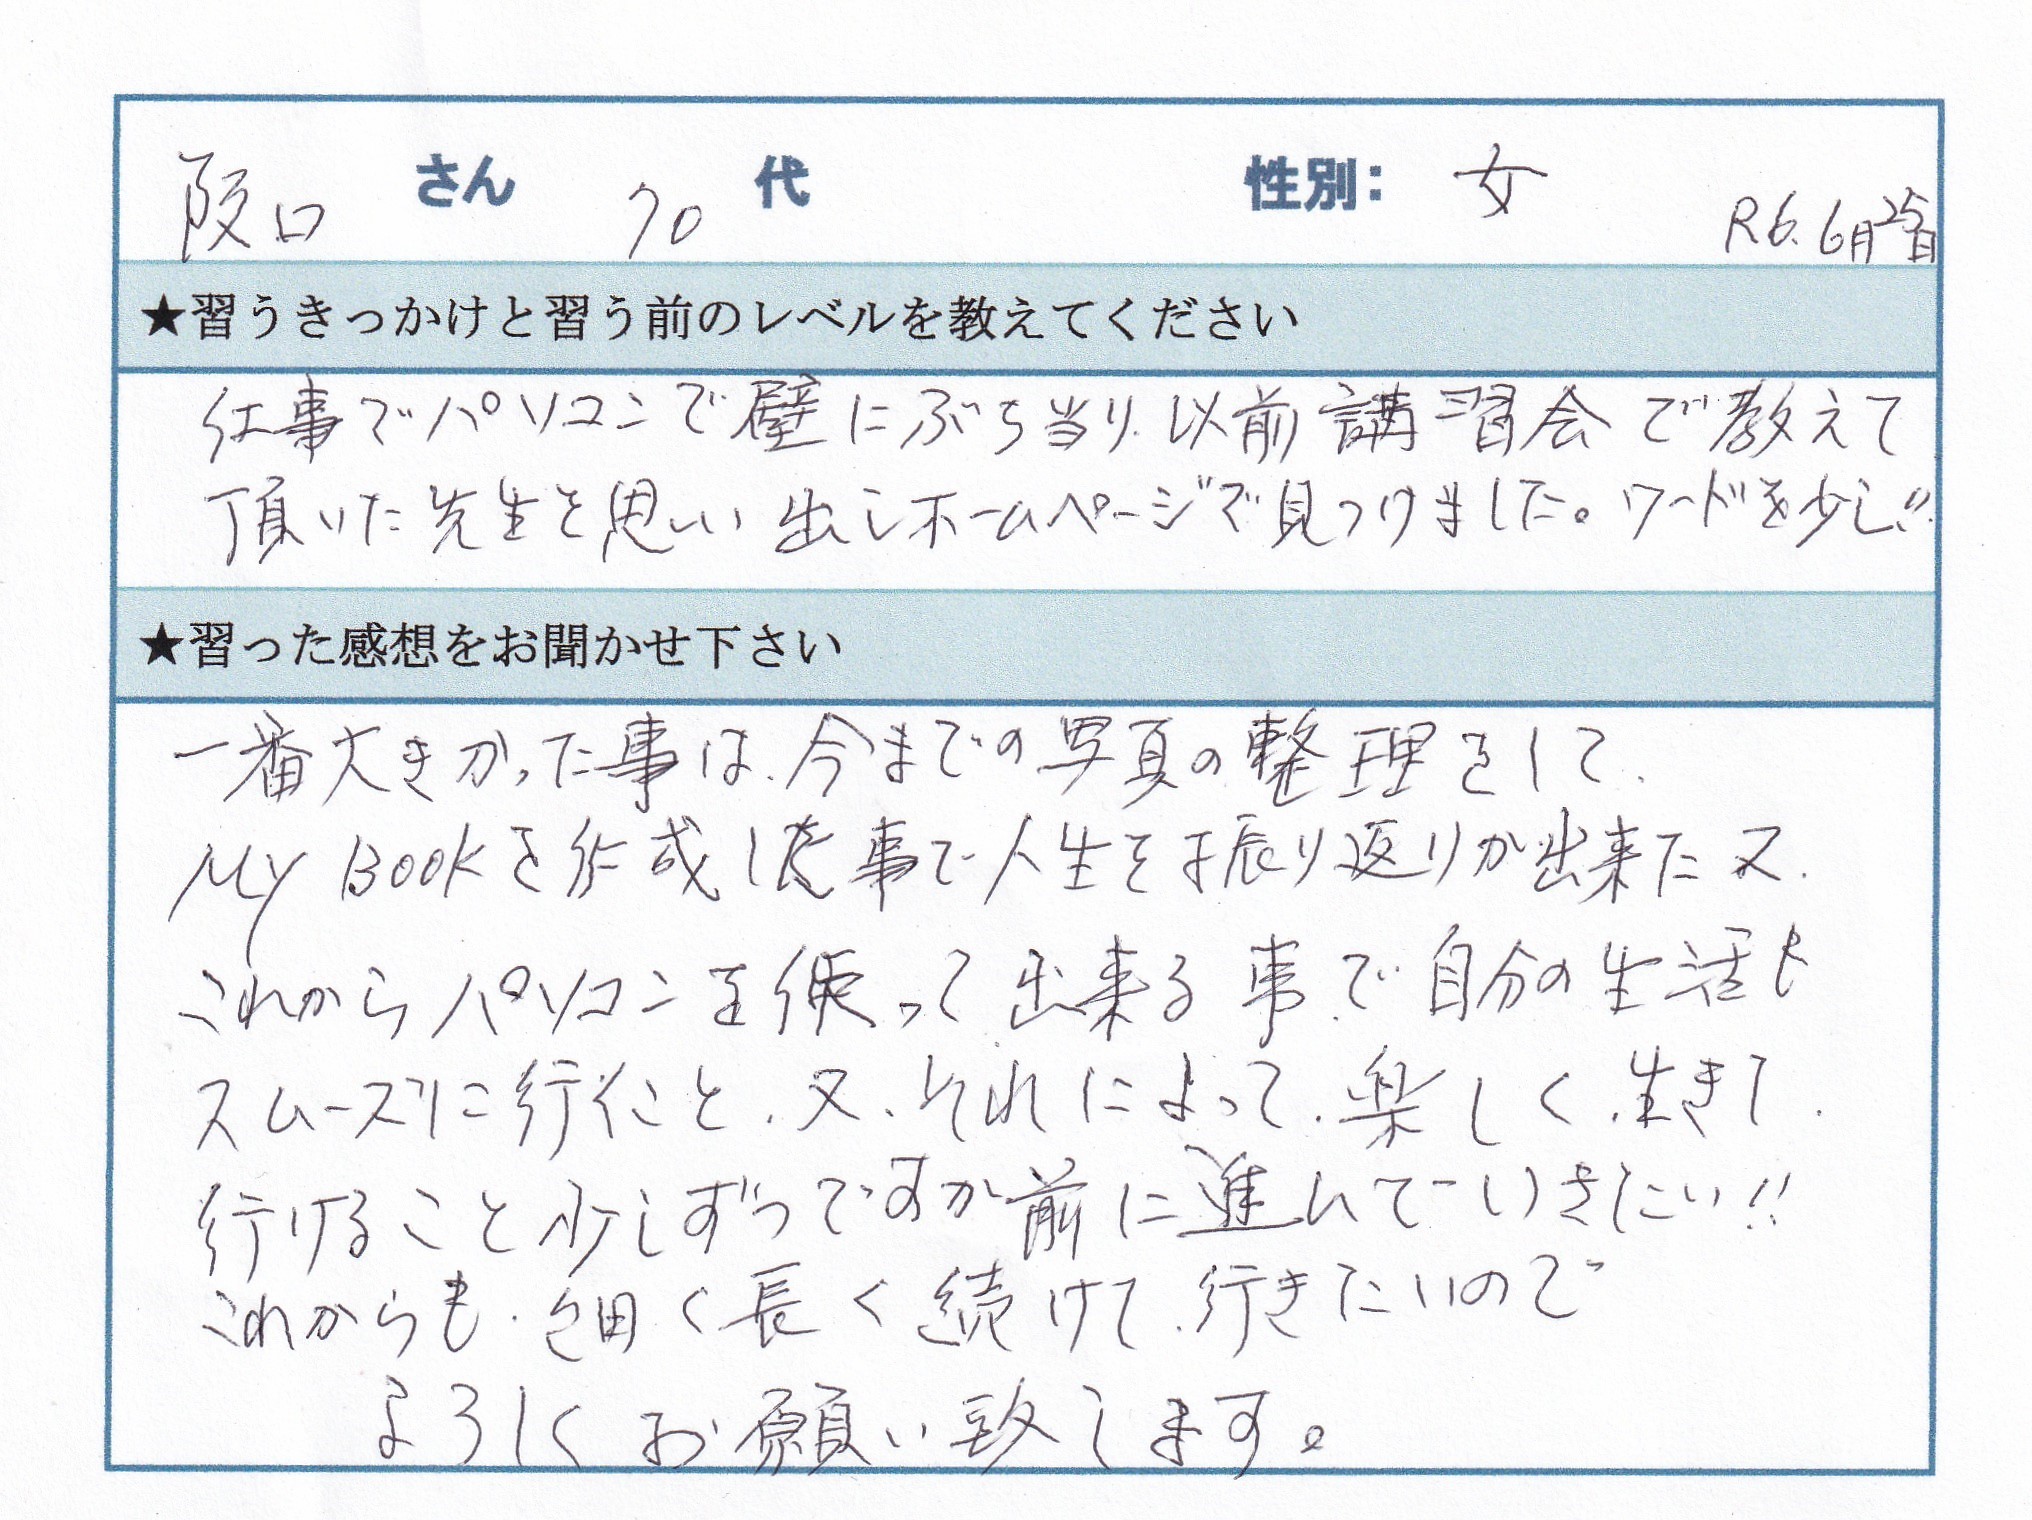 阪口 さん 70 代 性別: 女 R6.6月25日
★習うきっかけと習う前のレベルを教えてください
仕事でパソコンで壁にぶち当り、以前講習会で教えて
頂いた先生を思い出しホームページで見つけました。ワードを少し!!
★習った感想をお聞かせ下さい
一番大きかった事は、今までの写真の整理をして、
My Bookを作成した事で人生を振り返りが出来た又、
これからパソコンを使って出来る事で自分の生活も
スムーズに行くこと、又、それによって、楽しく、生きて、
行けること少しずつですが前に進んでいきたい!!
これからも、細く長く続けて、行きたいので
よろしくお願い致します。